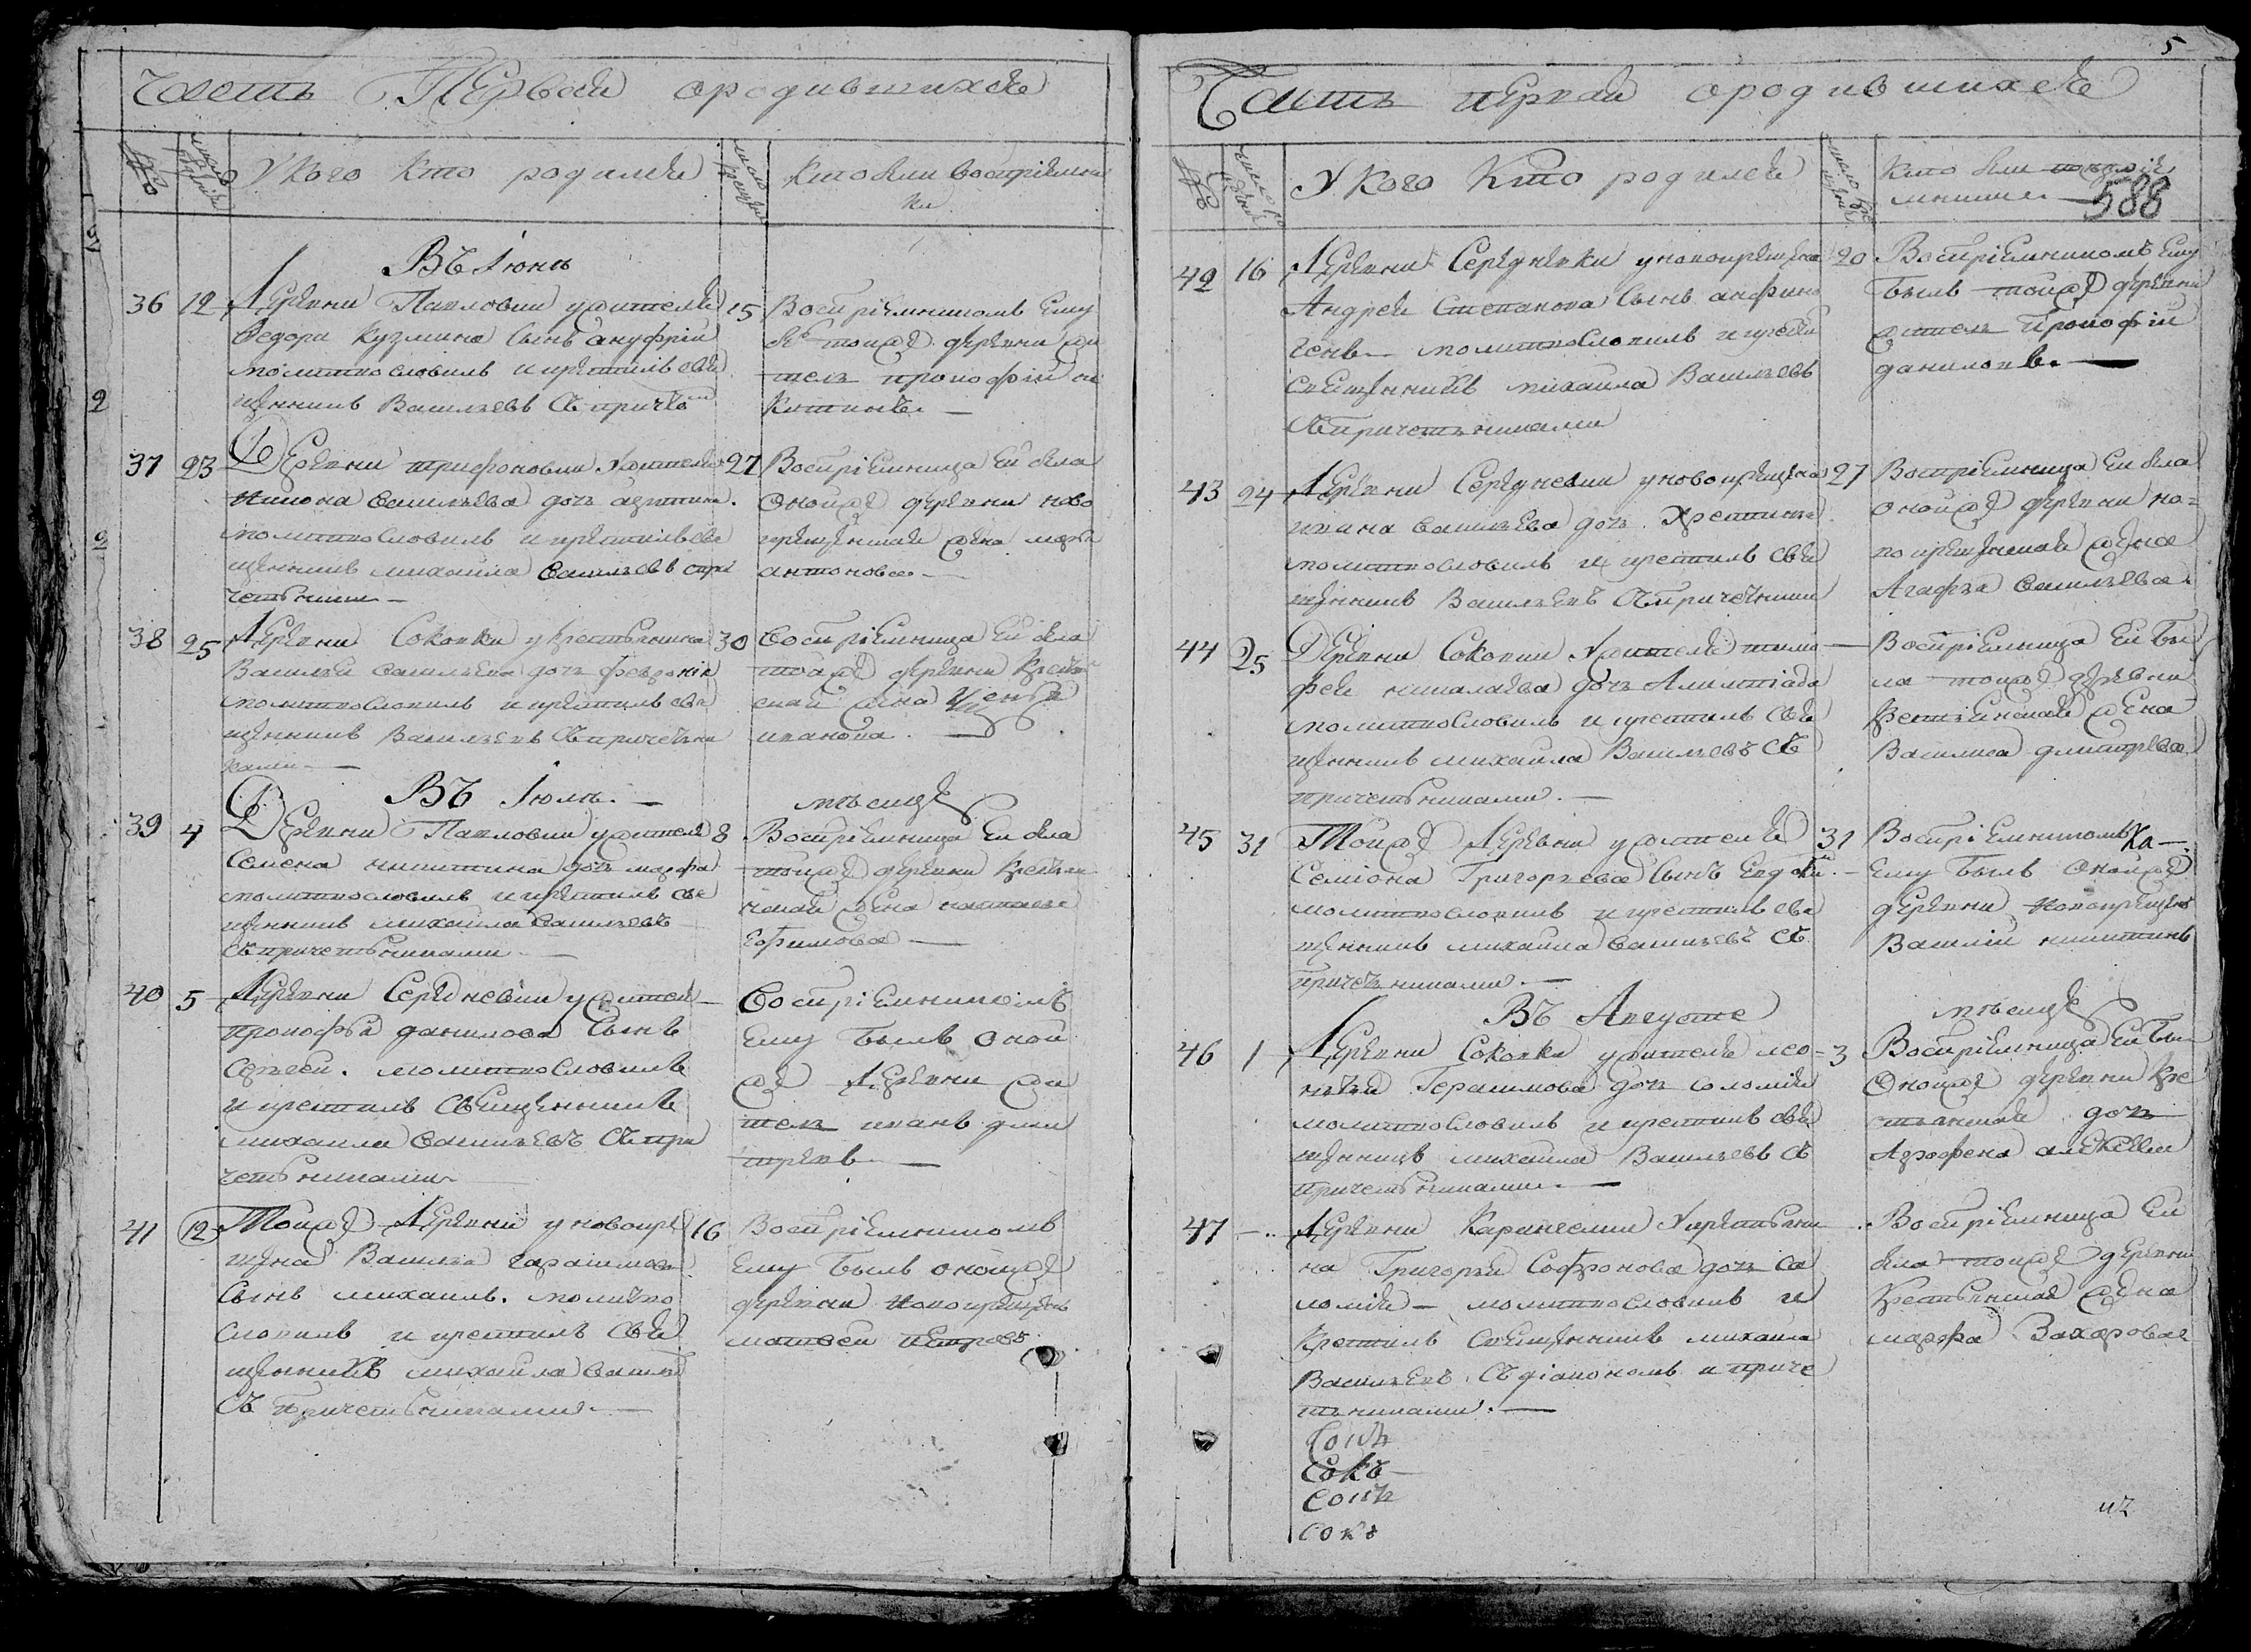 часть Первая ородившихся
У кого кто родился
кто были восприемни
ки
Въ Iюнѣ
36 12 Деревни Павловки у жителя
Федора Кузмина сынъ ануфрiй
молитвословилъ и крестилъ свя
щенникъ Васильевъ съ причет
15 Восприемникомъ ему
тояже деревни жи
тель прокофiй ни
китинъ
37 23 Деревни трифоновки у жителя
васильева дочь
молитвословилъ и крестилъ свя
щенникъ михаила васильевъ с при
четники
27 Восприемница ей была
оной же деревни ново
крещенная жена
антонова
38 25 Деревни Соковки у крестьянина
Василья васильева дочь феврониа
молитвословилъ и крестилъ свя
щенникъ Васильевъ съ причетни
ками
30 восприемница ей была
тояже деревни крестьян
ская жена
иванова
Въ Iюлѣ
мѣсяцѣ
39 4 Деревни Павловки у жителя
Семена никитина дочь марфа
молитвословилъ и крестилъ свя
щенникъ михаила васильевъ
съ причетниками
8 Восприемница ей была
тойже деревни крестьян
ская жена настасья
Ефимова
40 5 Деревни Середневки у жителя
прокофья данилова сынъ
Сергей. молитвословилъ
и крестилъ священникъ
михаила васильевъ съ при
четниками
восприемникомъ
ему былъ оной
же деревни жи
тель иванъ дми
трiевъ
41 12 Тойже Деревни у новокре
щена Василья гарасимова
сынъ михаилъ. молитво
словилъ и крестилъ свя
щенникъ михаила василь
съ причетниками
16 Восприемникомъ
ему былъ онойже
деревни новокрещенъ
матвей петровъ
5
Часть первая ородившихся
У кого кто родился
кто были
588
42 16 Деревни Середневки у новокрещена
Андрея Степанова сынъ
молитвословилъ и крестилъ
священникъ михаила Васильевъ
съ причетниками
20 Восприемникомъ ему
былъ тойже деревни
житель прокофiй
даниловъ
43 24 Деревни Середневки у новокрещена
ивана васильева дочь христина
молитвословилъ и крестилъ свя
щенникъ Васильевъ съ причетники
27 Восприемница ей была
онойже деревни но=
вокрещенная жена
Агафья васильева
44 25 Деревни Соковки у жителя тимо
фея николаева дочь Алимпiада
молитвословилъ и крестилъ свя
щенникъ михаила Васильевъ съ
причетниками
Восприемница ей бы
ла тойже деревни
крестьянская жена
Василиса дмитрева
45 31 Тойже Деревни у жителя
Семiона Григорьева сынъ Евдоким
молитвословилъ и крестилъ свя
щенникъ михаила васильевъ съ
причетниками
31 Восприемникомъ Ка
ему былъ онойже
деревни новокрещенъ
Василiй никитинъ
Въ Августе
мѣсяцѣ
46 1 Деревни Соковки у жителя лео=
нтья Герасимова дочь соломiя
молитвословилъ и крестилъ свя
щенникъ михаила Васильевъ съ
причетниками
3 Восприемница ей бы
Онойже деревни кре
стьянская дочь
Аграфена алексеева
47 Деревни у крестьяни
на Григорья Софронова дочь са
ломiя молитвословилъ и
крестилъ священникъ михаила
Васильевъ съ дiакономъ и приче
тниками
Восприемница ей
была тойже деревни
крестьянская жена
марфа Захарова